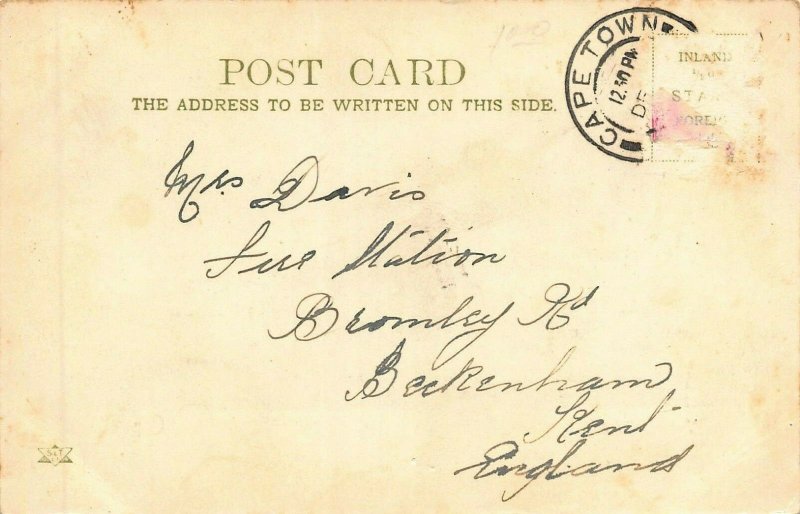 POST CARD
THE ADDRESS TO BE WRITTEN ON THIS SIDE.
CAPE TOWN
12.30 PM
INLAND
Mrs Davis
Fire Station
Bromley Rd
Beckenham
Kent
England